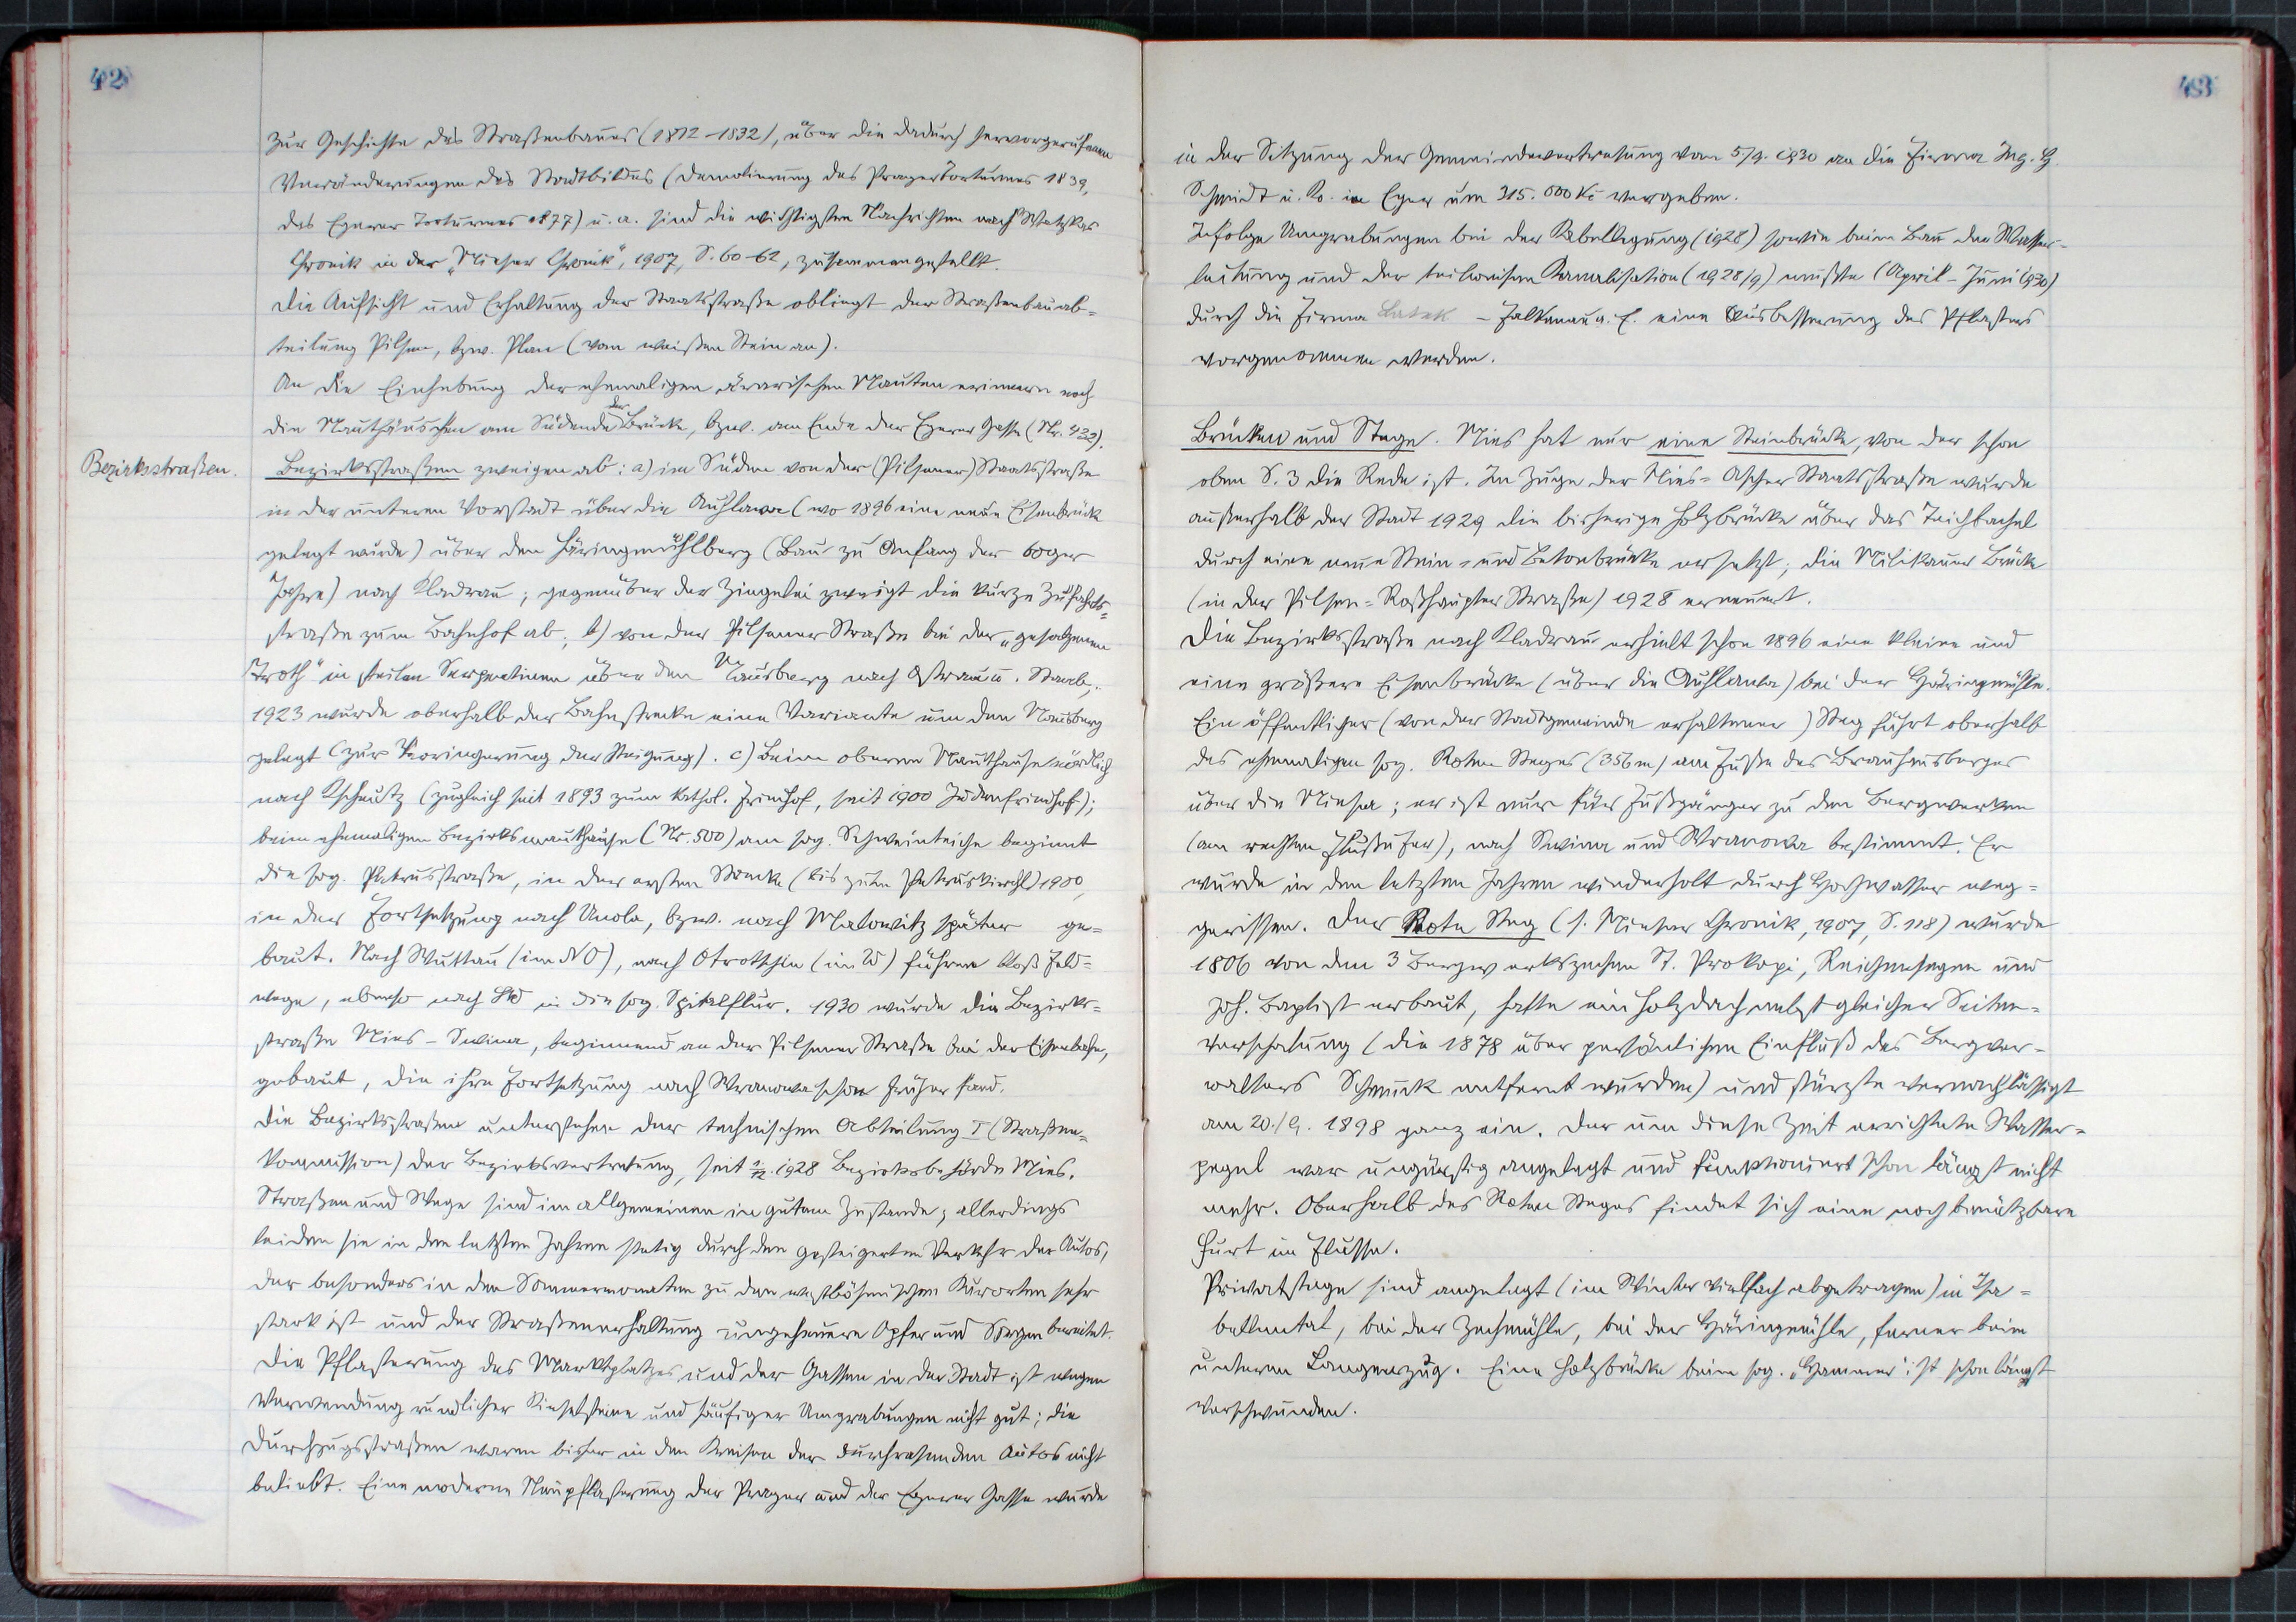 42
zur Geschichte des Straßenbaues (1812-1832), über die dadurch hervorgerufenen
Veränderungen des Stadtbildes (Demolierung des Pragertorturmes 1839,
des Egerer Torturmes 1877) u. a. sind die wichtigsten Nachrichten nach Watzkas
Chronik in der „Mieser Chronik", 1907, S. 60-62, zusammengestellt.
Die Aufsicht und Erhaltung der Staatsstraße obliegt der Straßenbauab=
teilung Pilsen, bzw. Plan (vom weißen Stein an).
An die Einhebung der ehemaligen ärarischen Mauten erinnern noch
die Mauthäuschen am Südende der Brücke, bzw. am Ende der Egerer Gasse (Nr. 423).
Bezirksstraßen.
Bezirksstraßen zweigen ab: a) im Süden von der (Pilsener) Staatsstraße
in der unteren Vorstadt über die Auslawa (wo 1896 eine neue Eisenbrück
gelegt wurde) über den Häringmühlberg (Bau zu Anfang der 60ger
Jahre) nach Kladrau; gegenüber der Ziegelei zweigt die kurze Zufahrts=
straße zum Bahnhof ab; b) von der Pilsener Straße bei der „gesalzenen
Troth" in steilen Serpentinen über den Nausberg nach Ostrau u. Staab;
1923 wurde oberhalb der Bahnstrecke eine Variante um den Nausberg
gelegt (zur Verringerung der Steigung). c) Beim oberen Mauthause nördlich
nach Tscheutz (zugleich seit 1893 zum kathol. Friedhof, seit 1900 Judenfriedhof);
beim ehemaligen Bezirksmauthause (Nr. 500) am sog. Schweinteiche beginnt
die sog. Petrusstraße, in der ersten Strecke (bis zum Petruskirchl) 1900,
in der Fortsetzung nach Unola, bzw. nach Malowitz später ge=
baut. Nach Wuttau (im NO), nach Otrotschin (im W) führen bloß Feld=
wege, ebenso nach SW in die sog. Spitalflur. 1930 wurde die Bezirks=
straße Mies - Swina, beginnend an der Pilsener Straße bei der Eisenbahn,
gebaut, die ihre Fortsetzung nach Wranowa schon früher fand.
Die Bezirksstraßen unterstehen der technischen Abteilung I (Straßen=
kommission) der Bezirksvertretung, seit 1/12. 1928 Bezirksbehörde Mies.
Straßen und Wege sind im allgemeinen in gutem Zustande; allerdings
leiden sie in den letzten Jahren stetig durch den gesteigerten Verkehr der Autos,
der besonders in den Sommermonaten zu den westböhmischen Kurorten sehr
stark ist und der Straßenerhaltung ungeheuere Opfer und Sorgen bereitet.
Die Pflasterung des Marktplatzes und der Gassen in der Stadt ist wegen
Verwendung rundlicher Kieselsteine und häufiger Umgrabungen nicht gut; die
Durchzugsstraßen waren bisher in den Kreisen der durchrasenden Autos nicht
beliebt. Eine moderne Neupflasterung der Prager und der Egerer Gasse wurde
43
in der Sitzung der Gemeindevertretung vom 5/9. 1930 an die Firma Ing. G.
Schmidt u. Ko. in Eger um 315.000 Kč vergeben.
Infolge Umgrabungen bei der Kabellegung (1928) sowie beim Bau der Wasser=
leitung und der teilweisen Kanalisation (1928/9) mußte (April - Juni 1930)
durch die Firma Batek - Falkenau a. E. eine Ausbesserung des Pflasters
vorgenommen werden.
Brücken und Stege. Mies hat nur eine Steinbrücke, von der schon
oben S. 3 die Rede ist. Im Zuge der Mies=Ascher Staatsstraße wurde
außerhalb der Stadt 1929 die bisherige Holzbrücke über das Teichbachel
durch eine neue Stein- und Betonbrücke ersetzt; die Milikauer Brücke
(in der Pilsen=Roßhaupter Straße) 1928 erneuert.
Die Bezirksstraße nach Kladrau erhielt schon 1896 eine kleine und
eine größere Eisenbrücke (über die Auslawa) bei der Häringmühle.
Ein öffentlicher (von der Stadtgemeinde erhaltener) Steg führt oberhalb
des ehemaligen sog. Roten Steges (356 m) am Fuße des Brauhausberges
über die Miesa; er ist nur für Fußgänger zu den Bergwerken
(am rechten Flußufer), nach Swina und Wranowa bestimmt. Er
wurde in den letzten Jahren wiederholt durch Hochwasser weg=
gerissen. Der Rote Steg (s. Mieser Chronik, 1907, S. 118) wurde
1806 von den 3 Bergwerkszechen St. Prokopi, Reichensegen und
Joh. Baptist erbaut, hatte ein Holzdach nebst gleicher Seiten=
verschalung (die 1878 über persönlichen Einfluß des Bergver=
walters Schmuck entfernt wurden) und stürzte vernachlässigt
am 20./9. 1898 ganz ein. Der um diese Zeit errichtete Wasser=
pegel war ungünstig angelegt und funktioniert schon längst nicht
mehr. Oberhalb des Roten Steges findet sich eine noch benützbare
Furt im Flusse.
Privatstege sind angelegt (im Winter vielfach abgetragen) in Isa=
bellental, bei der Zechmühle, bei der Häringmühle, ferner beim
unteren Langenzug. Eine Holzbrücke beim sog. „Hammer" ist schon längst
verschwunden.